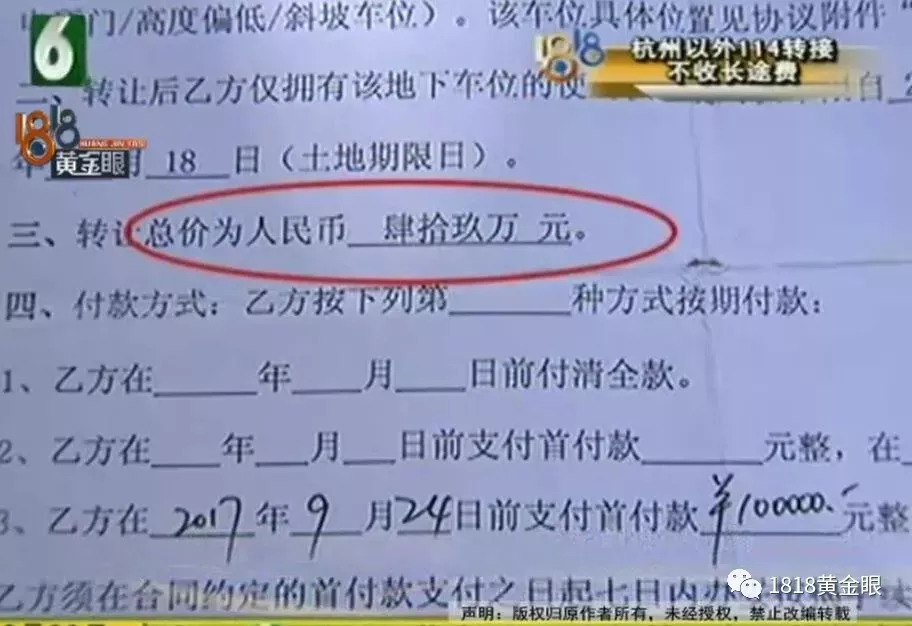 中间门/高度偏低/斜坡车位）。该车位具体位置见协议附件“
6
1818
杭州以外114转接
不收长途费
二、转让后乙方仅拥有该地下车位的使
限自 2
1818
HUANG JIN YAN
黄金眼
年 月 18 日（土地期限日）。
三、转让总价为人民币 肆拾玖万 元。
四、付款方式：乙方按下列第______种方式按期付款：
1、乙方在_____年____月____日前付清全款。
2、乙方在____年___月___日前支付首付款______元整，在
3、乙方在 2017 年 9 月 24 日前支付首付款 ¥100000.- 元整
乙方须在合同约定的首付款支付之日起七日内办
1818黄金眼
声明：版权归原作者所有，未经授权，禁止改编转载